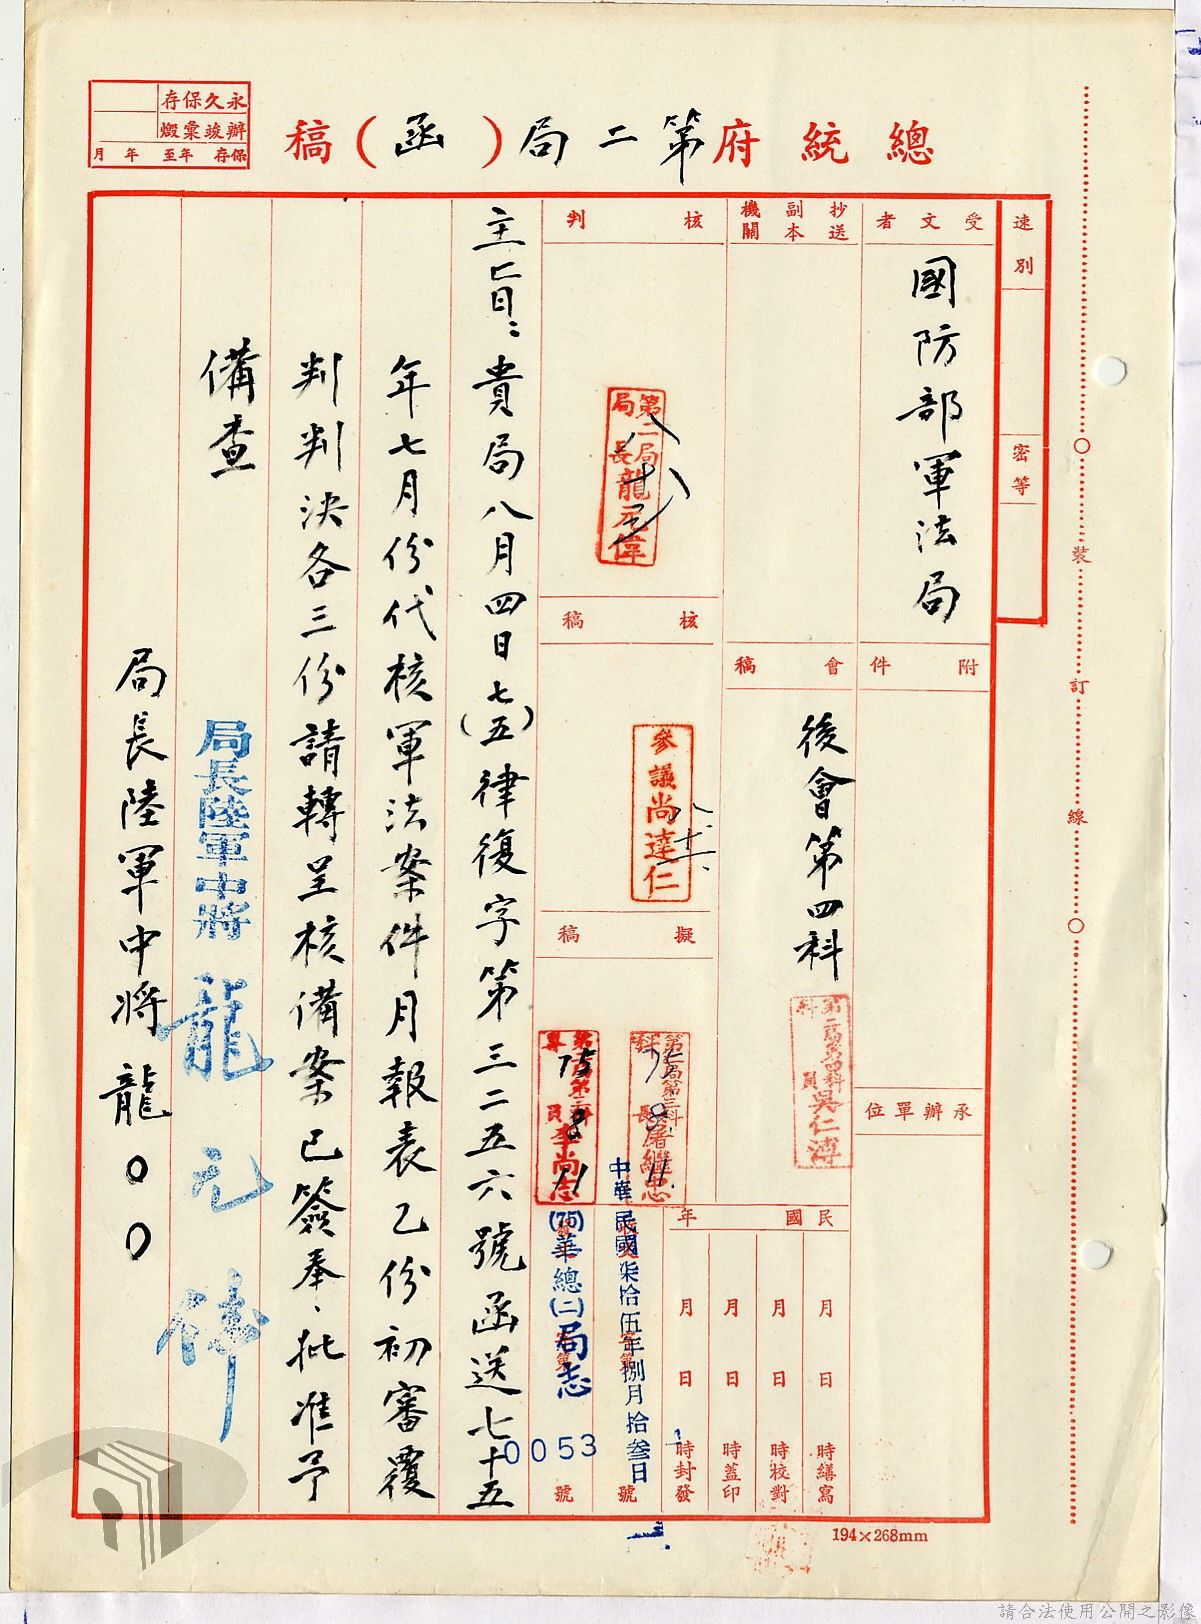 總統府第二局(函)稿
永久保存
辦竣彙燬
保存 年至 年 月
速別
密等
受文者
國防部軍法局
附件
承辦單位
抄送副本機關
會稿
後會第四科
第二局第四科科員吳仁溥
核判
第二局局長龍元偉
八、十三
核稿
參議尚達仁
八、十二、
擬稿
第二局第三科科長屠繼忠
75 8 11.
第二局第三科專員李尚志
75 8 11
民國 年
月 日 時繕寫
月 日 時校對
月 日 時蓋印
月 日 時封發
中華民國柒拾伍年捌月拾叁日
號
(75)華總(二)局志
0053
號
主旨:貴局八月四日(七五)律復字第三二五六號函送七十五
年七月份代核軍法案件月報表乙份初審覆
判判決各三份請轉呈核備案已簽奉、批准予
備查
局長陸軍中將龍元偉
局長陸軍中將龍○○
裝
訂
線
194×268mm
請合法使用公開之影像